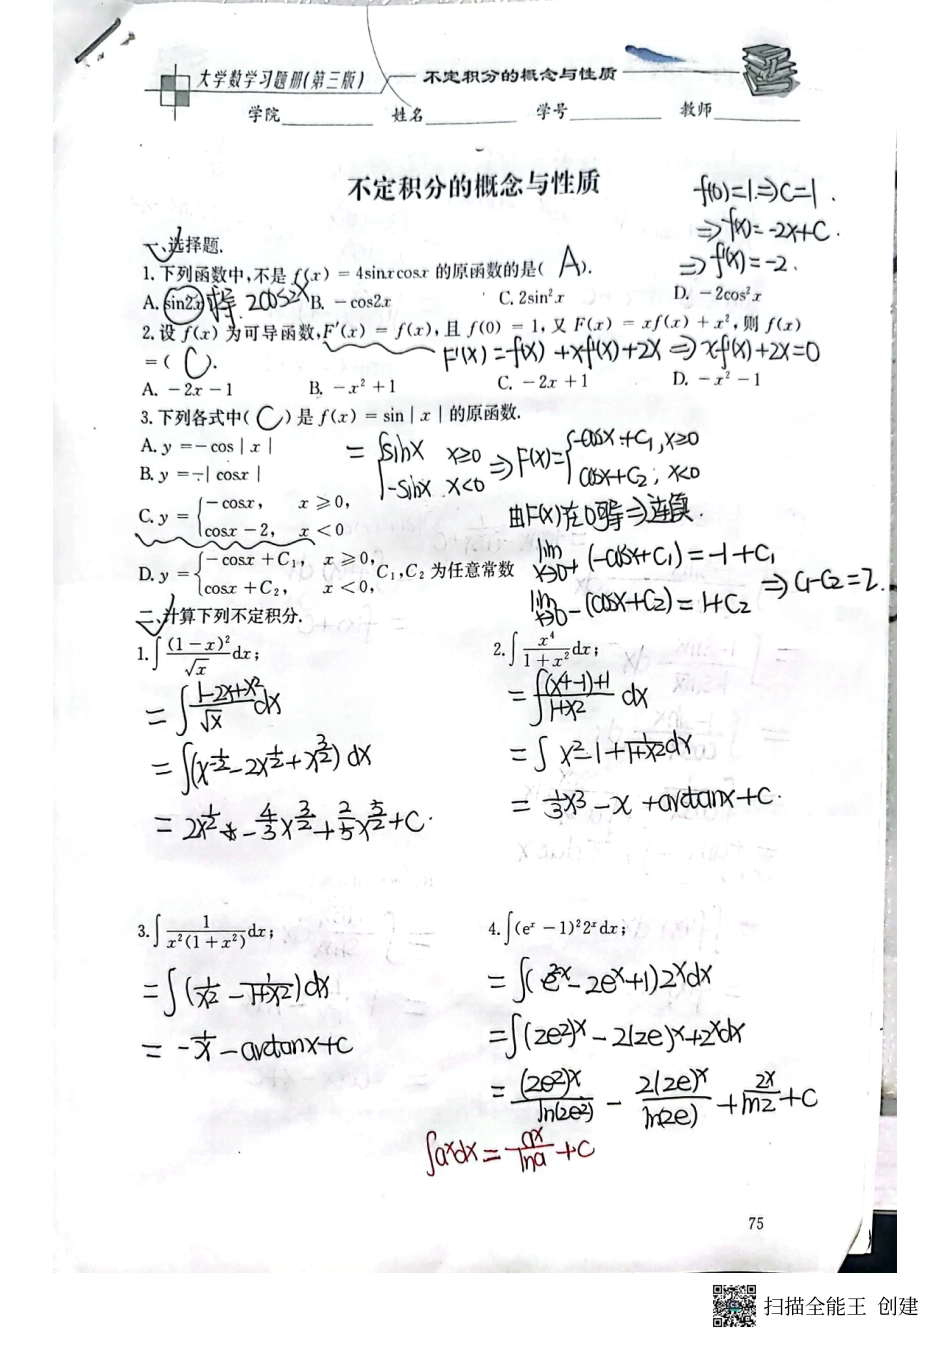 大学数学习题册(第三版) 不定积分的概念与性质
学院 姓名 学号 教师
不定积分的概念与性质
f(0)=1.⇒C=1.
⇒f(x)=-2x+C.
⇒f'(x)=-2.
一、选择题.
1.下列函数中,不是 f(x) = 4sinxcosx 的原函数的是( A ).
A. sin2x 求导. 2cos2x B. -cos2x C. 2sin²x D. -2cos²x
2.设 f(x) 为可导函数,F'(x) = f(x),且 f(0) = 1,又 F(x) = xf(x) + x²,则 f(x)
=( C ). F'(x)=f(x)+xf'(x)+2x⇒xf'(x)+2x=0
A. -2x-1 B. -x²+1 C. -2x+1 D. -x²-1
3.下列各式中( C )是 f(x) = sin|x| 的原函数.
A. y =-cos|x|
B. y =-|cosx|
= {sinx x≥0 -sinx x<0 ⇒F(x)={-cosx+C₁, x≥0 cosx+C₂; x<0
C. y = {-cosx, x≥0, cosx-2, x<0
由F(x)在0可导⇒连续.
D. y = {-cosx+C₁, x≥0, cosx+C₂, x<0, C₁,C₂ 为任意常数
lim x→0+ (-cosx+C₁)=-1+C₁
lim x→0- (cosx+C₂)=1+C₂ ⇒C₁-C₂=2.
二、计算下列不定积分.
1.∫(1-x)²/√x dx;
=∫(1-2x+x²)/√x dx
=∫(x^(-1/2)-2x^(1/2)+x^(3/2))dx
=2x^(1/2)-4/3x^(3/2)+2/5x^(5/2)+C.
2.∫x⁴/(1+x²)dx;
=∫((x⁴-1)+1)/(1+x²) dx
=∫x²-1+1/(1+x²)dx
=1/3x³-x+arctanx+C.
3.∫1/(x²(1+x²))dx;
=∫(1/x²-1/(1+x²))dx
=-1/x-arctanx+C
4.∫(eˣ-1)²2ˣdx;
=∫(e^(2x)-2eˣ+1)2ˣdx
=∫(2e²)ˣ-2(2e)ˣ+2ˣdx
=(2e²)ˣ/ln(2e²)-2(2e)ˣ/ln(2e)+2ˣ/ln2+C
∫aˣdx=aˣ/lna+C
75
扫描全能王 创建